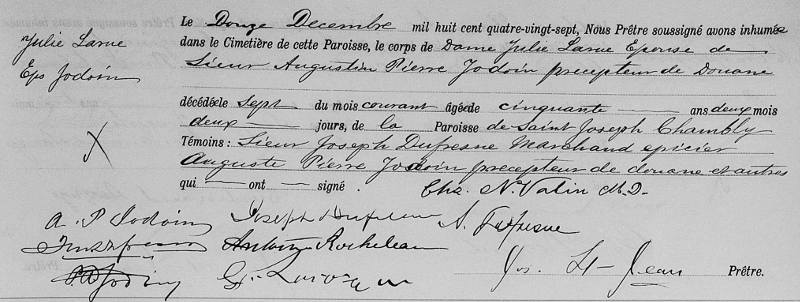 Julie Larue
Eps Jodoin
Le Douze Decembre mil huit cent quatre-vingt-sept, Nous Prêtre soussigné avons inhumée
dans le Cimetière de cette Paroisse, le corps de Dame Julie Larue Epouse de
Sieur Augustin Pierre Jodoin precepteur de Douane
décédée le Sept du mois courant âgée de cinquante ans deux mois
deux jours, de la Paroisse de Saint Joseph Chambly
Témoins : Sieur Joseph Dufresne Marchand epicier
Auguste Pierre Jodoin precepteur de douane et autres
qui ont signé. Chs. N. Valin M.D.
A. P. Jodoin Joseph Dufresne
Antoine Rocheleau
Jos. St-Jean Prêtre.